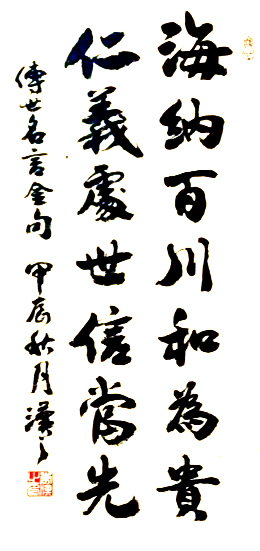 海納百川和為貴
仁義處世信當先
傳世名言金句 甲辰秋月漢